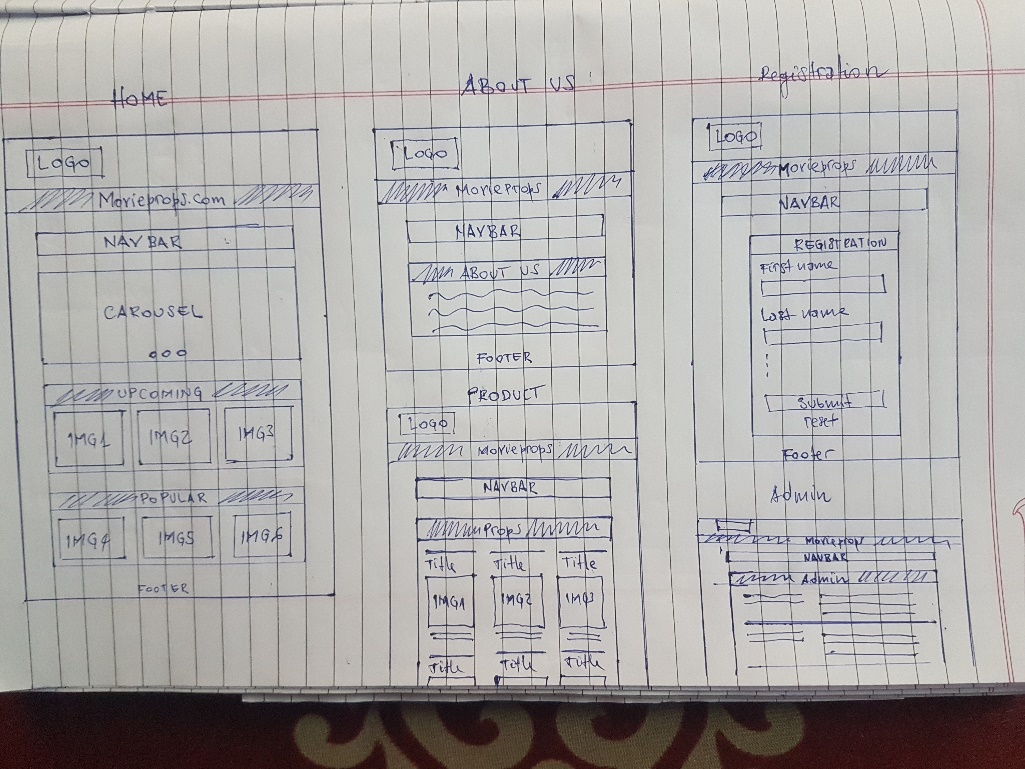 HOME
LOGO
Movieprops.com
NAVBAR
CAROUSEL
UPCOMING
IMG1 IMG2 IMG3
POPULAR
IMG4 IMG5 IMG6
FOOTER
ABOUT US
LOGO
Movieprops
NAVBAR
ABOUT US
FOOTER
PRODUCT
LOGO
Movieprops
NAVBAR
Props
Title Title Title
IMG1 IMG2 IMG3
Title Title Title
Registration
LOGO
Movieprops
NAVBAR
REGISTRATION
First name
Last name
Submit
reset
Footer
Admin
Movieprop
NAVBAR
Admin